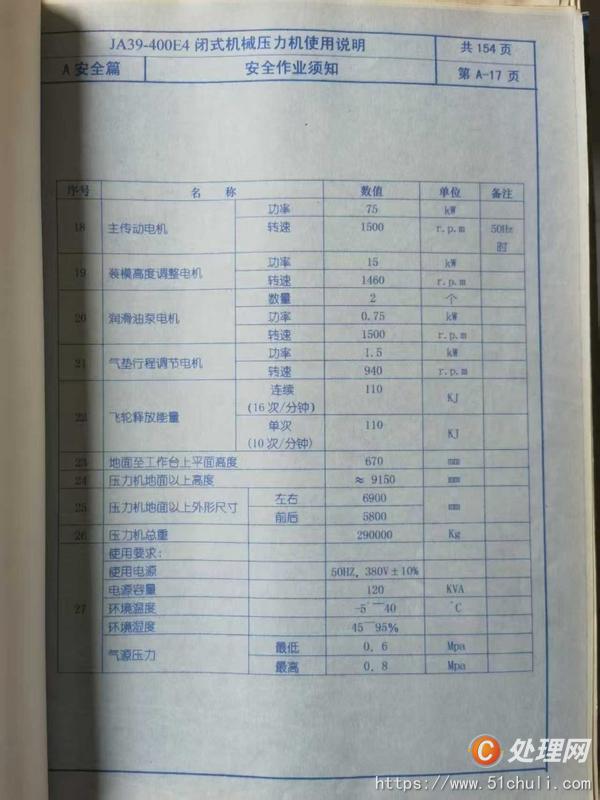 JA39-400E4 闭式机械压力机使用说明 共 154 页
A 安全篇 安全作业须知 第 A-17 页
序号 名 称 数值 单位 备注
18 主传动电机 功率 75 kW
转速 1500 r.p.m 50Hz
时
19 装模高度调整电机 功率 15 kW
转速 1460 r.p.m
20 润滑油泵电机 数量 2 个
功率 0.75 kW
转速 1500 r.p.m
21 气垫行程调节电机 功率 1.5 kW
转速 940 r.p.m
22 飞轮释放能量 连续 110 KJ
(16 次/分钟)
单次 110 KJ
(10 次/分钟)
23 地面至工作台上平面高度 670 mm
24 压力机地面以上高度 ≈ 9150 mm
25 压力机地面以上外形尺寸 左右 6900 mm
前后 5800
26 压力机总重 290000 Kg
27 使用要求:
使用电源 50HZ, 380V±10%
电源容量 120 KVA
环境温度 -5~40 ℃
环境湿度 45~95%
气源压力 最低 0.6 Mpa
最高 0.8 Mpa
C 处理网
https://www.51chuli.com/